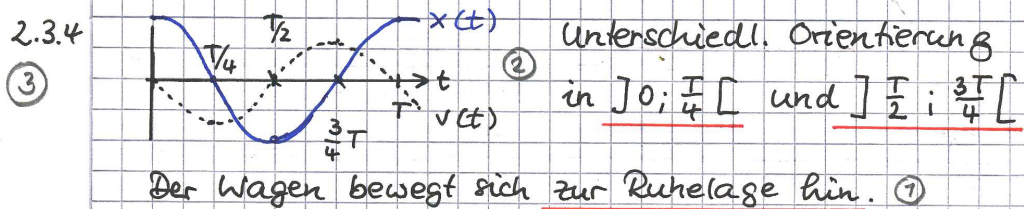 2.3.4
③
x(t)
T/2
T/4
t
T
v(t)
3/4 T
② Unterschiedl. Orientierung
in ]0; T/4 [ und ] T/2 ; 3T/4 [
Der Wagen bewegt sich zur Ruhelage hin. ①